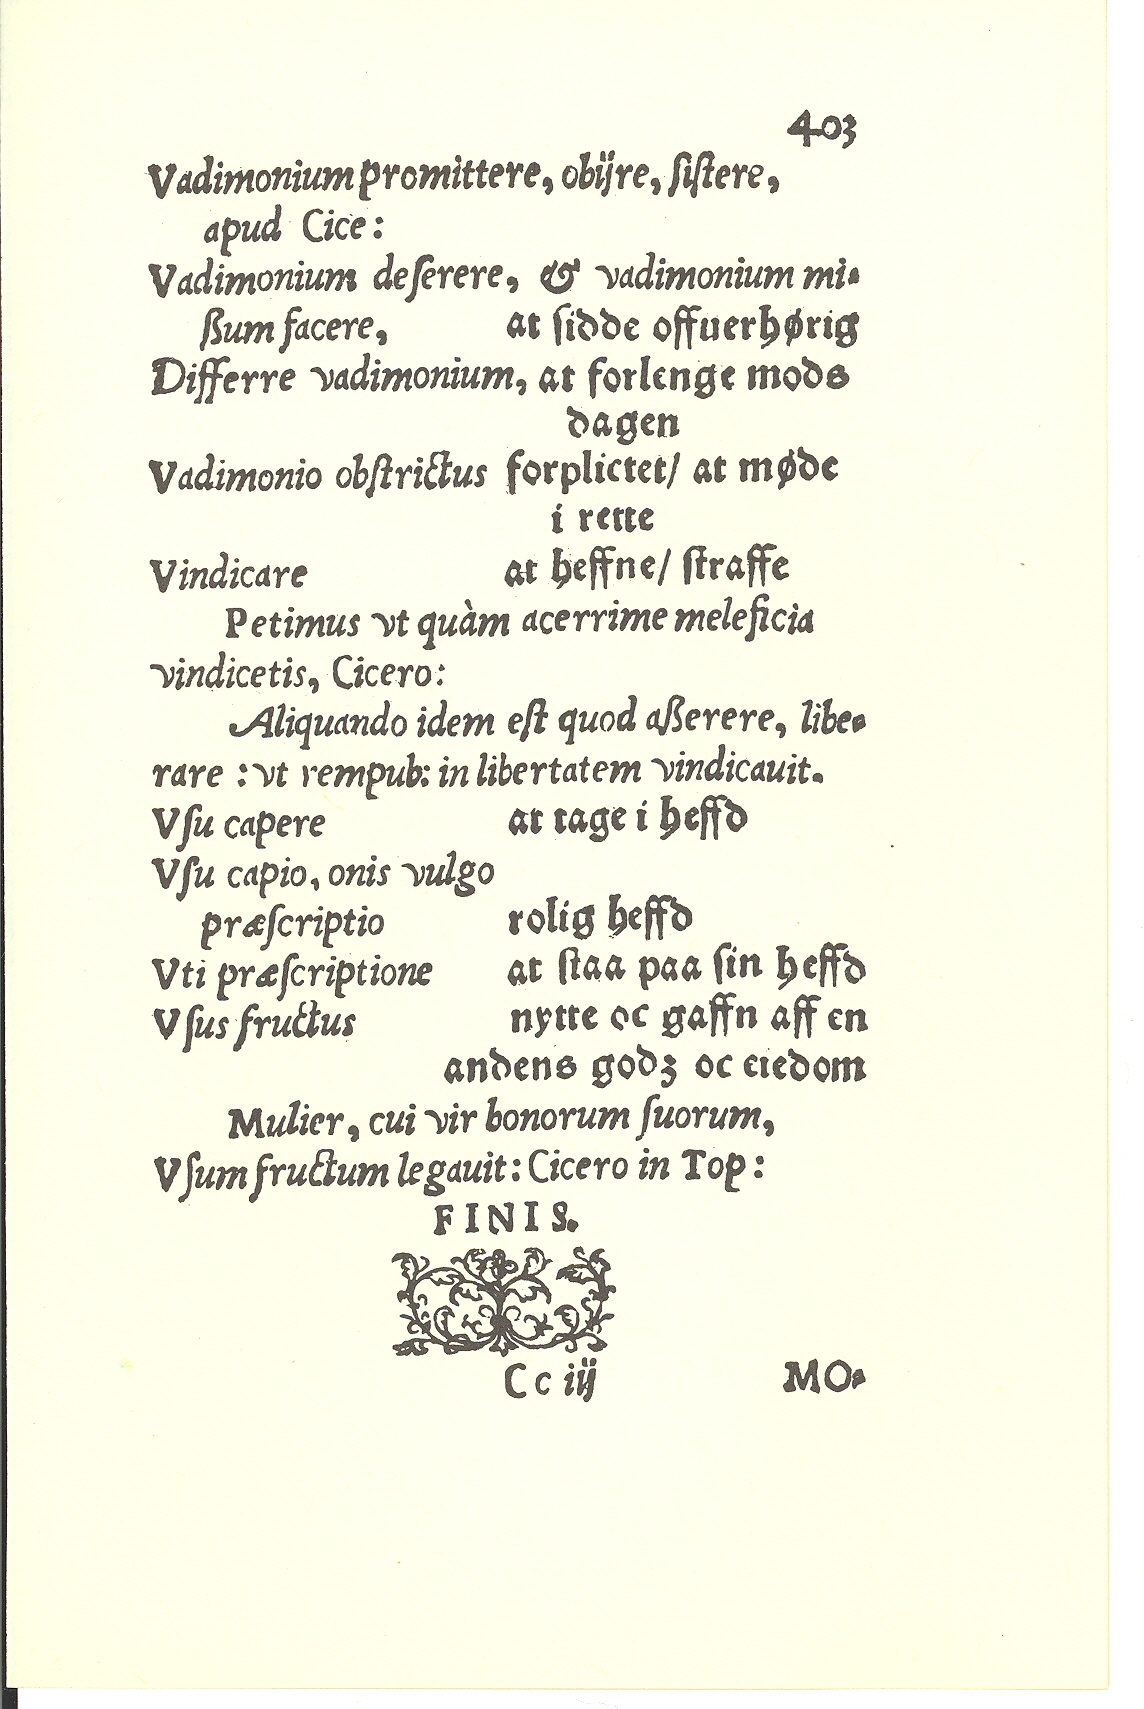 403
Vadimonium promittere, obijre, ſiſtere,
apud Cice:
Vadimonium deſerere, & vadimonium mi-
ßum facere, at ſidde offuerhørig
Differre vadimonium, at forlenge mods
dagen
Vadimonio obſtrictus forplictet/ at møde
i rette
Vindicare at heffne/ ſtraffe
Petimus vt quàm acerrime meleficia
vindicetis, Cicero:
Aliquando idem eſt quod aßerere, libe-
rare : vt rempub: in libertatem vindicauit.
Vſu capere at tage i heffd
Vſu capio, onis vulgo
præſcriptio rolig heffd
Vti præſcriptione at ſtaa paa ſin heffd
Vſus fructus nytte oc gaffn aff en
andens godz oc eiedom
Mulier, cui vir bonorum ſuorum,
Vſum fructum legauit: Cicero in Top:
FINIS.
Cc iij MO-